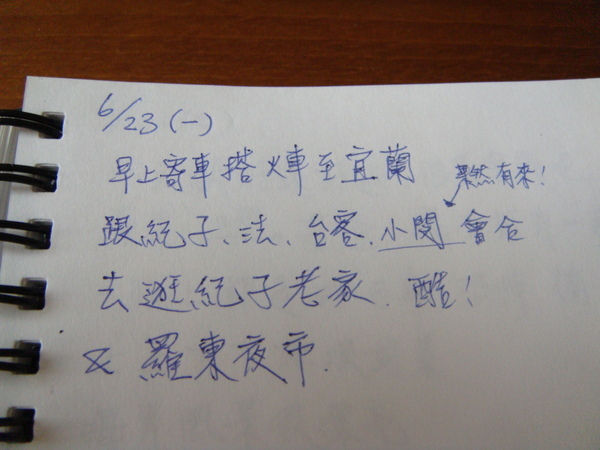 6/23 (一)
早上寄車搭火車至宜蘭
果然有來!
跟紀子、法、台客、小閔會合
去逛紀子老家、酷!
& 羅東夜市.